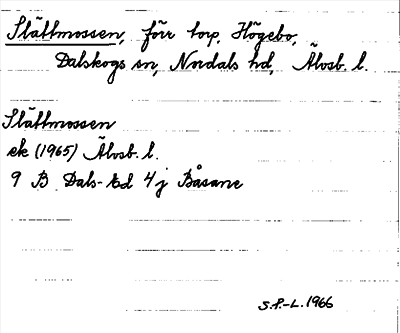 Slättmossen, förr torp, Högebo,
Dalskogs sn, Nordals hd, Älvsb. l.
Slättmossen
ek (1965) Älvsb. l.
9 B Dals-Ed 4 j Båsane
S.P.-L. 1966